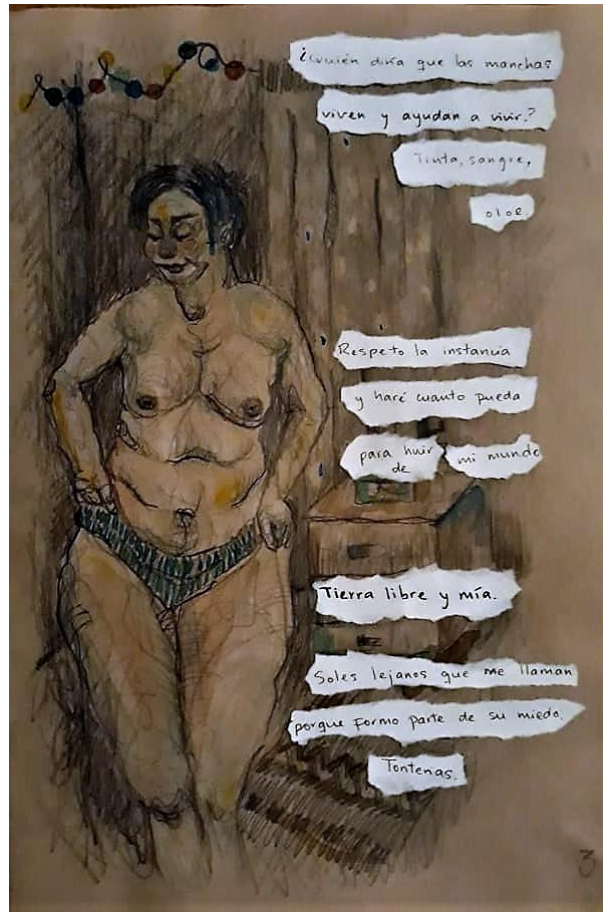 ¿Quién dirá que las manchas
viven y ayudan a vivir?
Tinta, sangre,
olor.
Respeto la instancia
y haré cuanto pueda
para huir de mi mundo
Tierra libre y mía.
Soles lejanos que me llaman
porque formo parte de su miedo.
Tonterías.
3